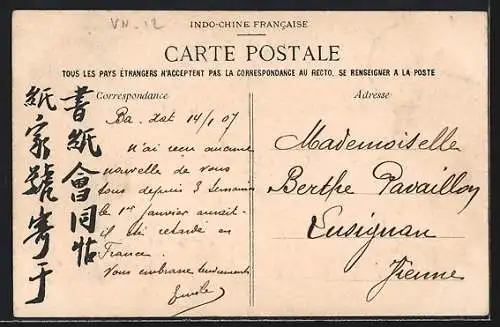 VN-12
INDO-CHINE FRANÇAISE
CARTE POSTALE
TOUS LES PAYS ÉTRANGERS N'ACCEPTENT PAS LA CORRESPONDANCE AU RECTO. SE RENSEIGNER A LA POSTE
Correspondance
Adresse
書紙會同帖
紙家號寄于
Ba. dat 14/1 07
n'ai reçu aucune
nouvelle de vous
tous depuis 3 semaines
le 1er Janvier
il été retardé en
France.
Vous embrasse tendrement
Mademoiselle
Berthe Pavaillon
Lusignan
Vienne